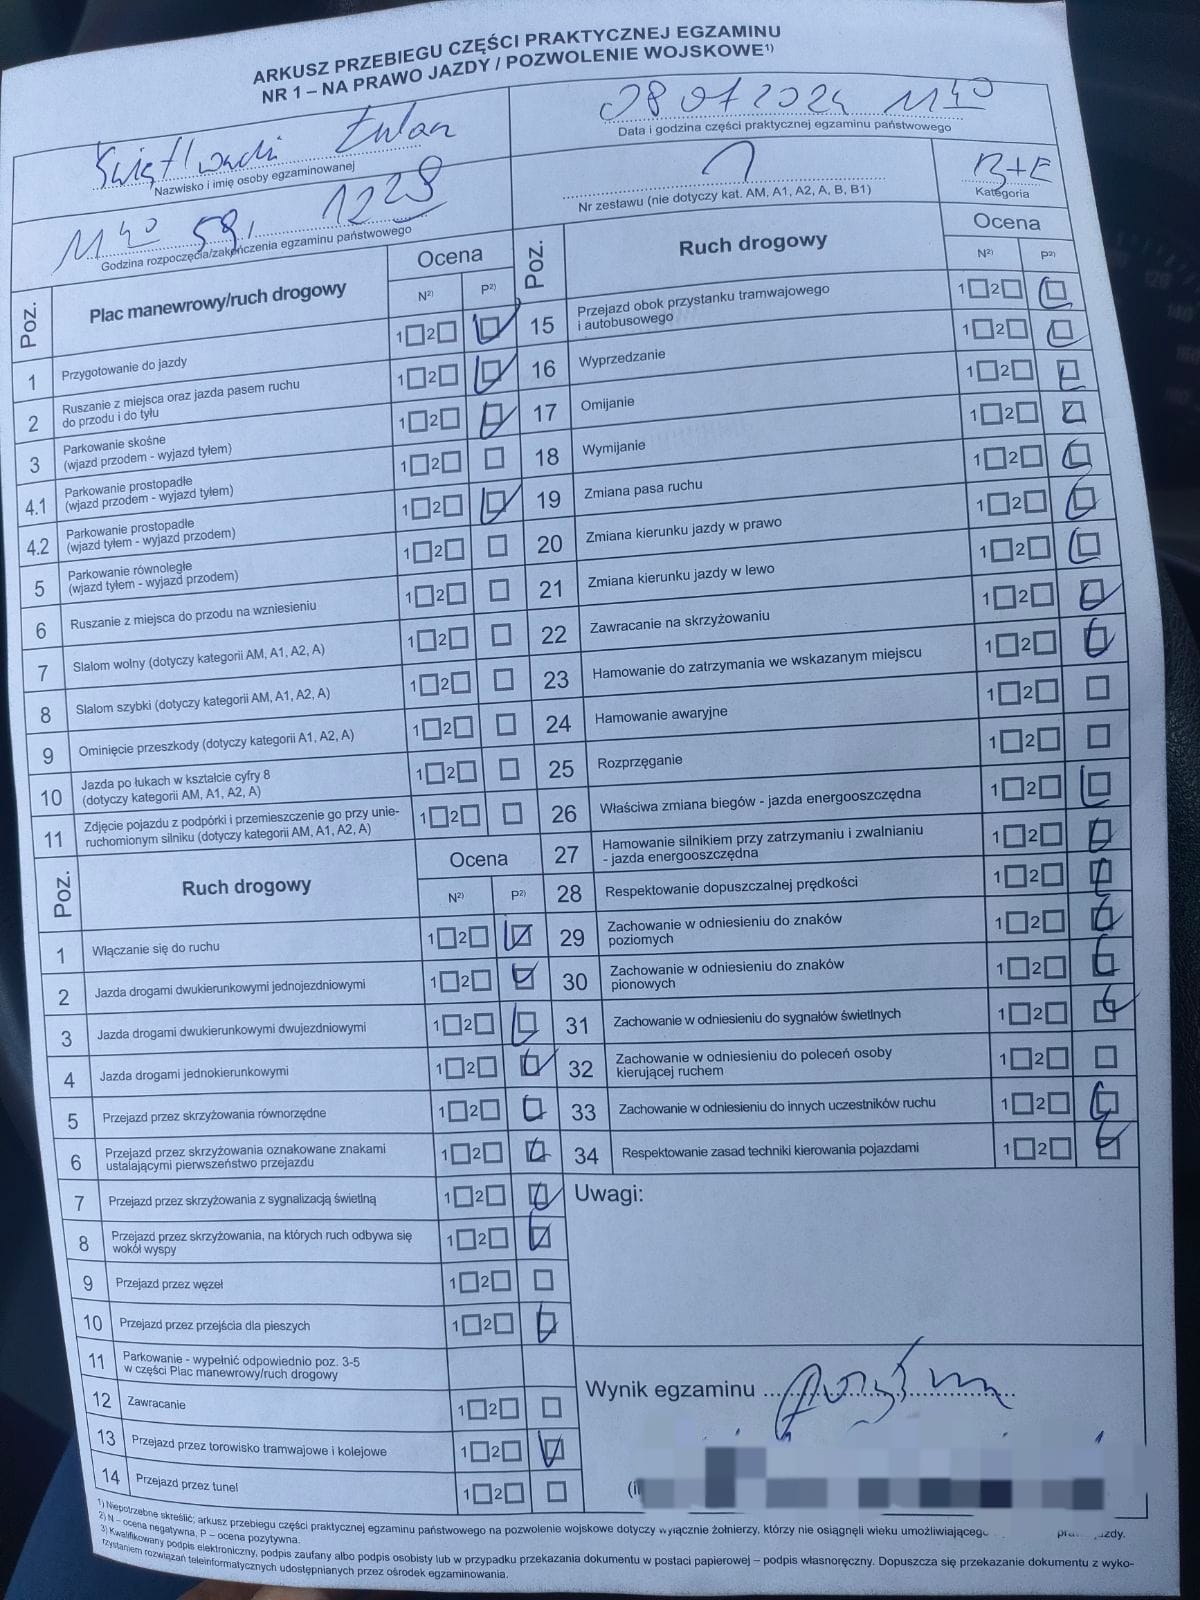 ARKUSZ PRZEBIEGU CZĘŚCI PRAKTYCZNEJ EGZAMINU
NR 1 – NA PRAWO JAZDY / POZWOLENIE WOJSKOWE¹⁾
Nazwisko i imię osoby egzaminowanej
08 01 2024 11 40
Data i godzina części praktycznej egzaminu państwowego
11 40 12 23
Godzina rozpoczęcia/zakończenia egzaminu państwowego
1
Nr zestawu (nie dotyczy kat. AM, A1, A2, A, B, B1)
B+E
Kategoria
Poz. Plac manewrowy/ruch drogowy Ocena
N²⁾ P²⁾
1 Przygotowanie do jazdy 1 2
2 Ruszanie z miejsca oraz jazda pasem ruchu
do przodu i do tyłu 1 2
3 Parkowanie skośne
(wjazd przodem - wyjazd tyłem) 1 2
4.1 Parkowanie prostopadłe
(wjazd przodem - wyjazd tyłem) 1 2
4.2 Parkowanie prostopadłe
(wjazd tyłem - wyjazd przodem) 1 2
5 Parkowanie równoległe
(wjazd tyłem - wyjazd przodem) 1 2
6 Ruszanie z miejsca do przodu na wzniesieniu 1 2
7 Slalom wolny (dotyczy kategorii AM, A1, A2, A) 1 2
8 Slalom szybki (dotyczy kategorii AM, A1, A2, A) 1 2
9 Ominięcie przeszkody (dotyczy kategorii A1, A2, A) 1 2
10 Jazda po łukach w kształcie cyfry 8
(dotyczy kategorii AM, A1, A2, A) 1 2
11 Zdjęcie pojazdu z podpórki i przemieszczenie go przy unie-
ruchomionym silniku (dotyczy kategorii AM, A1, A2, A) 1 2
Poz. Ruch drogowy Ocena
N²⁾ P²⁾
1 Włączanie się do ruchu 1 2
2 Jazda drogami dwukierunkowymi jednojezdniowymi 1 2
3 Jazda drogami dwukierunkowymi dwujezdniowymi 1 2
4 Jazda drogami jednokierunkowymi 1 2
5 Przejazd przez skrzyżowania równorzędne 1 2
6 Przejazd przez skrzyżowania oznakowane znakami
ustalającymi pierwszeństwo przejazdu 1 2
7 Przejazd przez skrzyżowania z sygnalizacją świetlną 1 2
8 Przejazd przez skrzyżowania, na których ruch odbywa się
wokół wyspy 1 2
9 Przejazd przez węzeł 1 2
10 Przejazd przez przejścia dla pieszych 1 2
11 Parkowanie - wypełnić odpowiednio poz. 3-5
w części Plac manewrowy/ruch drogowy
12 Zawracanie 1 2
13 Przejazd przez torowisko tramwajowe i kolejowe 1 2
14 Przejazd przez tunel 1 2
Poz. Ruch drogowy Ocena
N²⁾ P²⁾
15 Przejazd obok przystanku tramwajowego
i autobusowego 1 2
16 Wyprzedzanie 1 2
17 Omijanie 1 2
18 Wymijanie 1 2
19 Zmiana pasa ruchu 1 2
20 Zmiana kierunku jazdy w prawo 1 2
21 Zmiana kierunku jazdy w lewo 1 2
22 Zawracanie na skrzyżowaniu 1 2
23 Hamowanie do zatrzymania we wskazanym miejscu 1 2
24 Hamowanie awaryjne 1 2
25 Rozprzęganie 1 2
26 Właściwa zmiana biegów - jazda energooszczędna 1 2
27 Hamowanie silnikiem przy zatrzymaniu i zwalnianiu
- jazda energooszczędna 1 2
28 Respektowanie dopuszczalnej prędkości 1 2
29 Zachowanie w odniesieniu do znaków
poziomych 1 2
30 Zachowanie w odniesieniu do znaków
pionowych 1 2
31 Zachowanie w odniesieniu do sygnałów świetlnych 1 2
32 Zachowanie w odniesieniu do poleceń osoby
kierującej ruchem 1 2
33 Zachowanie w odniesieniu do innych uczestników ruchu 1 2
34 Respektowanie zasad techniki kierowania pojazdami 1 2
Uwagi:
Wynik egzaminu
1) Niepotrzebne skreślić; arkusz przebiegu części praktycznej egzaminu państwowego na pozwolenie wojskowe dotyczy wyłącznie żołnierzy, którzy nie osiągnęli wieku
2) N – ocena negatywna, P – ocena pozytywna.
3) Kwalifikowany podpis elektroniczny, podpis zaufany albo podpis osobisty lub w przypadku przekazania dokumentu w postaci papierowej – podpis własnoręczny. Dopuszcza się przekazanie dokumentu z wyko-
rzystaniem rozwiązań teleinformatycznych udostępnianych przez ośrodek egzaminowania.